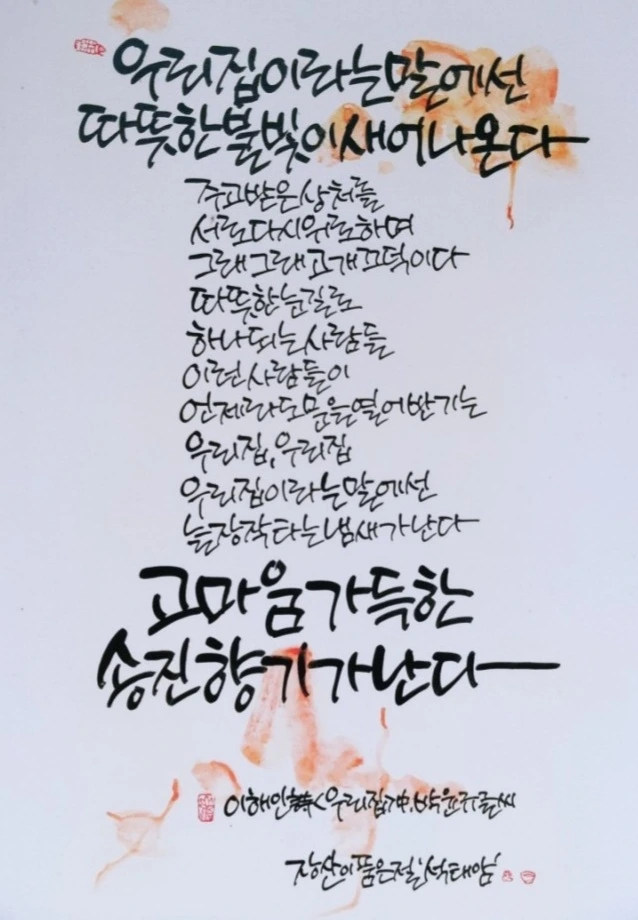 우리집이라는 말에선
따뜻한 불빛이 새어나온다
주고받은 상처를
서로 다시 위로하며
그래 그래 고개 끄덕이다
따뜻한 눈길로
하나 되는 사람들
이런 사람들이
언제라도 문을 열어 반기는
우리집, 우리집
우리집이라는 말에선
늘 장작 타는 냄새가 난다
고마움 가득한
송진 향기가 난다
이해인 詩 <우리집> 中, 박윤규 글씨
장산이 품은 절 '석태암'